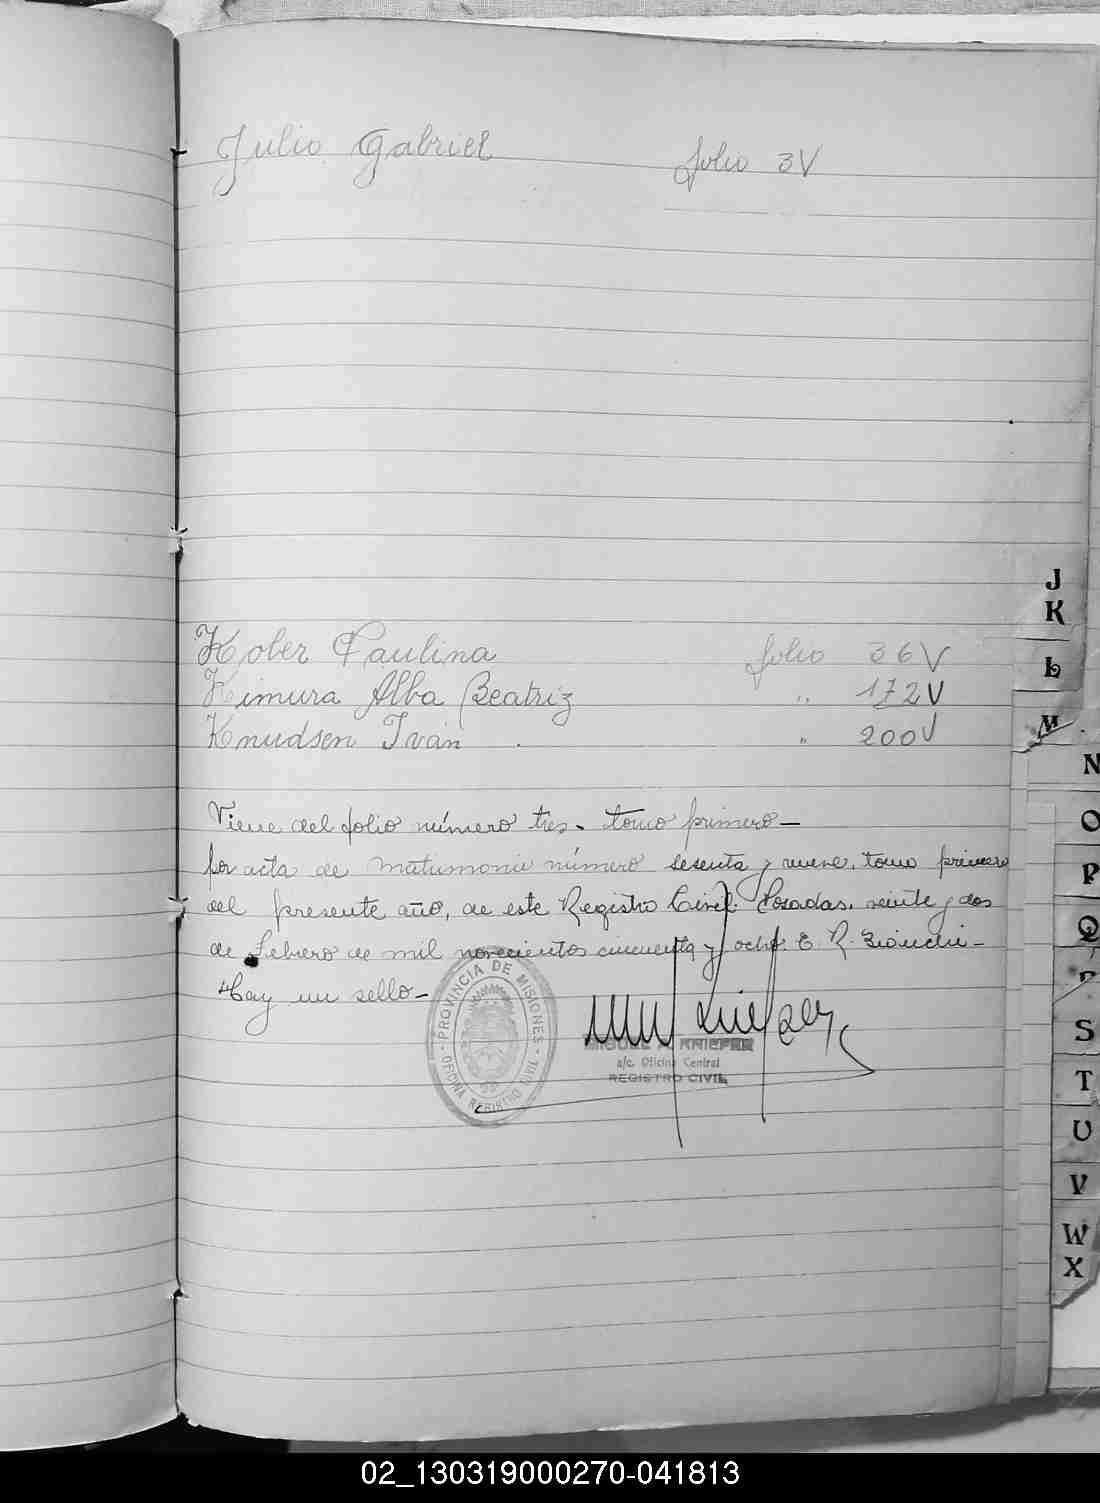 Julio Gabriel folio 3V
Kober Paulina folio 36V
Kimura Alba Beatriz " 172V
Knudsen Ivan " 200V
Viene del folio número tres. tomo primero—
por acta de matrimonio número sesenta y nueve, tomo primero
del presente año, de este Registro Civil. Posadas, veinte y dos
de febrero de mil novecientos cincuenta y ocho. E. R. Bianchi—
Hay un sello—
PROVINCIA DE MISIONES
OFICINA REGISTRO CIVIL
MIGUEL A. KNIEPER
a/c. Oficina Central
REGISTRO CIVIL
J
K
L
M
N
O
P
Q
S
T
U
V
W
X
02_130319000270-041813